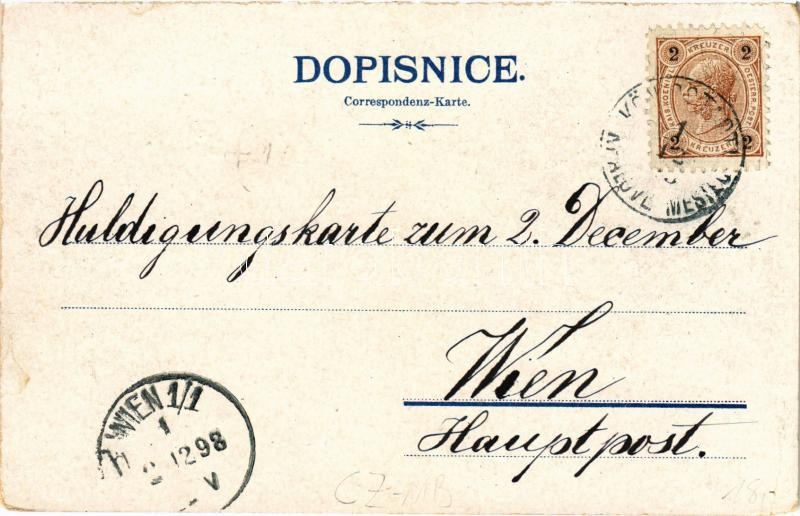 DOPISNICE.
Correspondenz-Karte.
2 KREUZER 2
2 KREUZER 2
MĚSTEC
Huldigungskarte zum 2. December
Wien
Hauptpost.
WIEN 1/1
1
2 12 98
V
CZ-MB
18,-